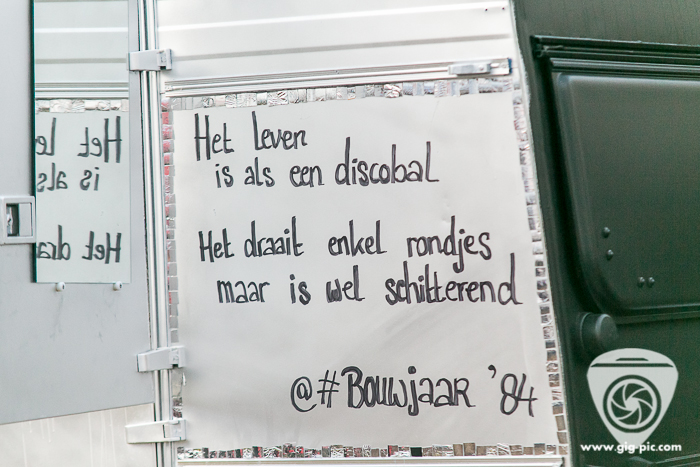 Het leven
is als een discobal
Het draait enkel rondjes
maar is wel schitterend
@#Bouwjaar '84
Het le
is als
Het dra
www.gig-pic.com